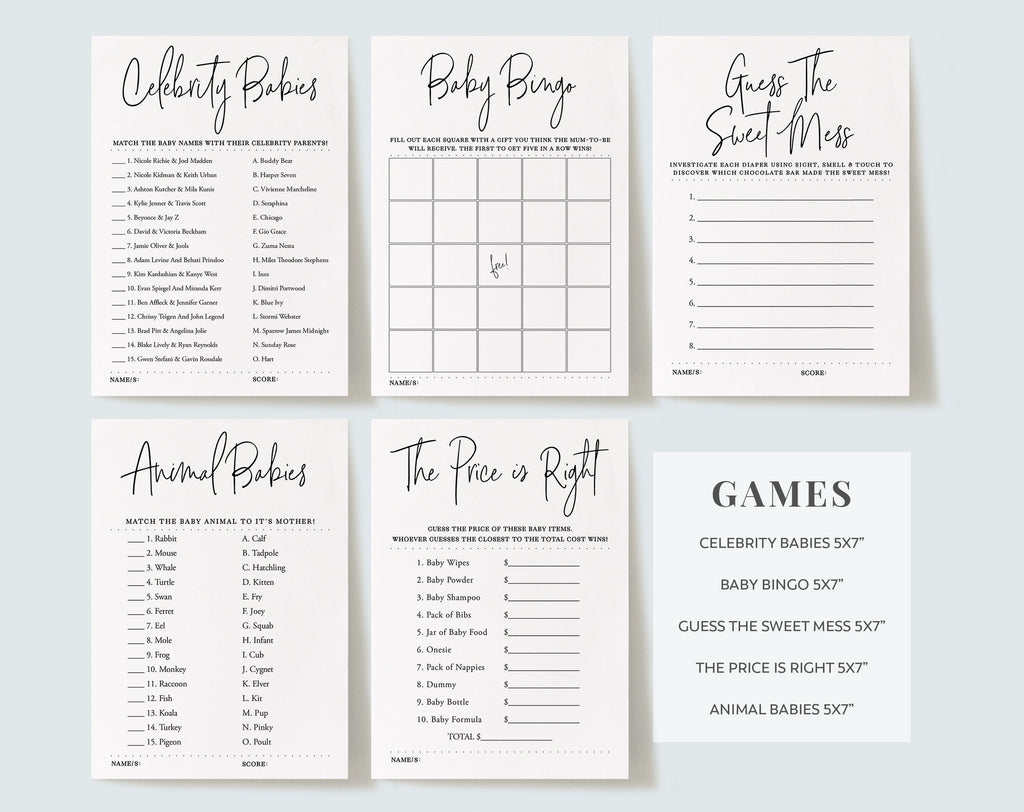 Celebrity Babies
MATCH THE BABY NAMES WITH THEIR CELEBRITY PARENTS!
____ 1. Nicole Richie & Joel Madden A. Buddy Bear
____ 2. Nicole Kidman & Keith Urban B. Harper Seven
____ 3. Ashton Kutcher & Mila Kunis C. Vivienne Marcheline
____ 4. Kylie Jenner & Travis Scott D. Seraphina
____ 5. Beyonce & Jay Z E. Chicago
____ 6. David & Victoria Beckham F. Gio Grace
____ 7. Jamie Oliver & Jools G. Zuma Nesta
____ 8. Adam Levine And Behati Prinsloo H. Miles Theodore Stephens
____ 9. Kim Kardashian & Kanye West I. Ines
____ 10. Evan Spiegel And Miranda Kerr J. Dimitri Portwood
____ 11. Ben Affleck & Jennifer Garner K. Blue Ivy
____ 12. Chrissy Teigen And John Legend L. Stormi Webster
____ 13. Brad Pitt & Angelina Jolie M. Sparrow James Midnight
____ 14. Blake Lively & Ryan Reynolds N. Sunday Rose
____ 15. Gwen Stefani & Gavin Rossdale O. Hart
NAME/S: SCORE:
Baby Bingo
FILL OUT EACH SQUARE WITH A GIFT YOU THINK THE MUM-TO-BE
WILL RECEIVE. THE FIRST TO GET FIVE IN A ROW WINS!
free!
NAME/S:
Guess The
Sweet Mess
INVESTIGATE EACH DIAPER USING SIGHT, SMELL & TOUCH TO
DISCOVER WHICH CHOCOLATE BAR MADE THE SWEET MESS!
1.
2.
3.
4.
5.
6.
7.
8.
NAME/S: SCORE:
Animal Babies
MATCH THE BABY ANIMAL TO IT'S MOTHER!
____ 1. Rabbit A. Calf
____ 2. Mouse B. Tadpole
____ 3. Whale C. Hatchling
____ 4. Turtle D. Kitten
____ 5. Swan E. Fry
____ 6. Ferret F. Joey
____ 7. Eel G. Squab
____ 8. Mole H. Infant
____ 9. Frog I. Cub
____ 10. Monkey J. Cygnet
____ 11. Raccoon K. Elver
____ 12. Fish L. Kit
____ 13. Koala M. Pup
____ 14. Turkey N. Pinky
____ 15. Pigeon O. Poult
NAME/S: SCORE:
The Price is Right
GUESS THE PRICE OF THESE BABY ITEMS.
WHOEVER GUESSES THE CLOSEST TO THE TOTAL COST WINS!
1. Baby Wipes $
2. Baby Powder $
3. Baby Shampoo $
4. Pack of Bibs $
5. Jar of Baby Food $
6. Onesie $
7. Pack of Nappies $
8. Dummy $
9. Baby Bottle $
10. Baby Formula $
TOTAL $
NAME/S:
GAMES
CELEBRITY BABIES 5X7"
BABY BINGO 5X7"
GUESS THE SWEET MESS 5X7"
THE PRICE IS RIGHT 5X7"
ANIMAL BABIES 5X7"